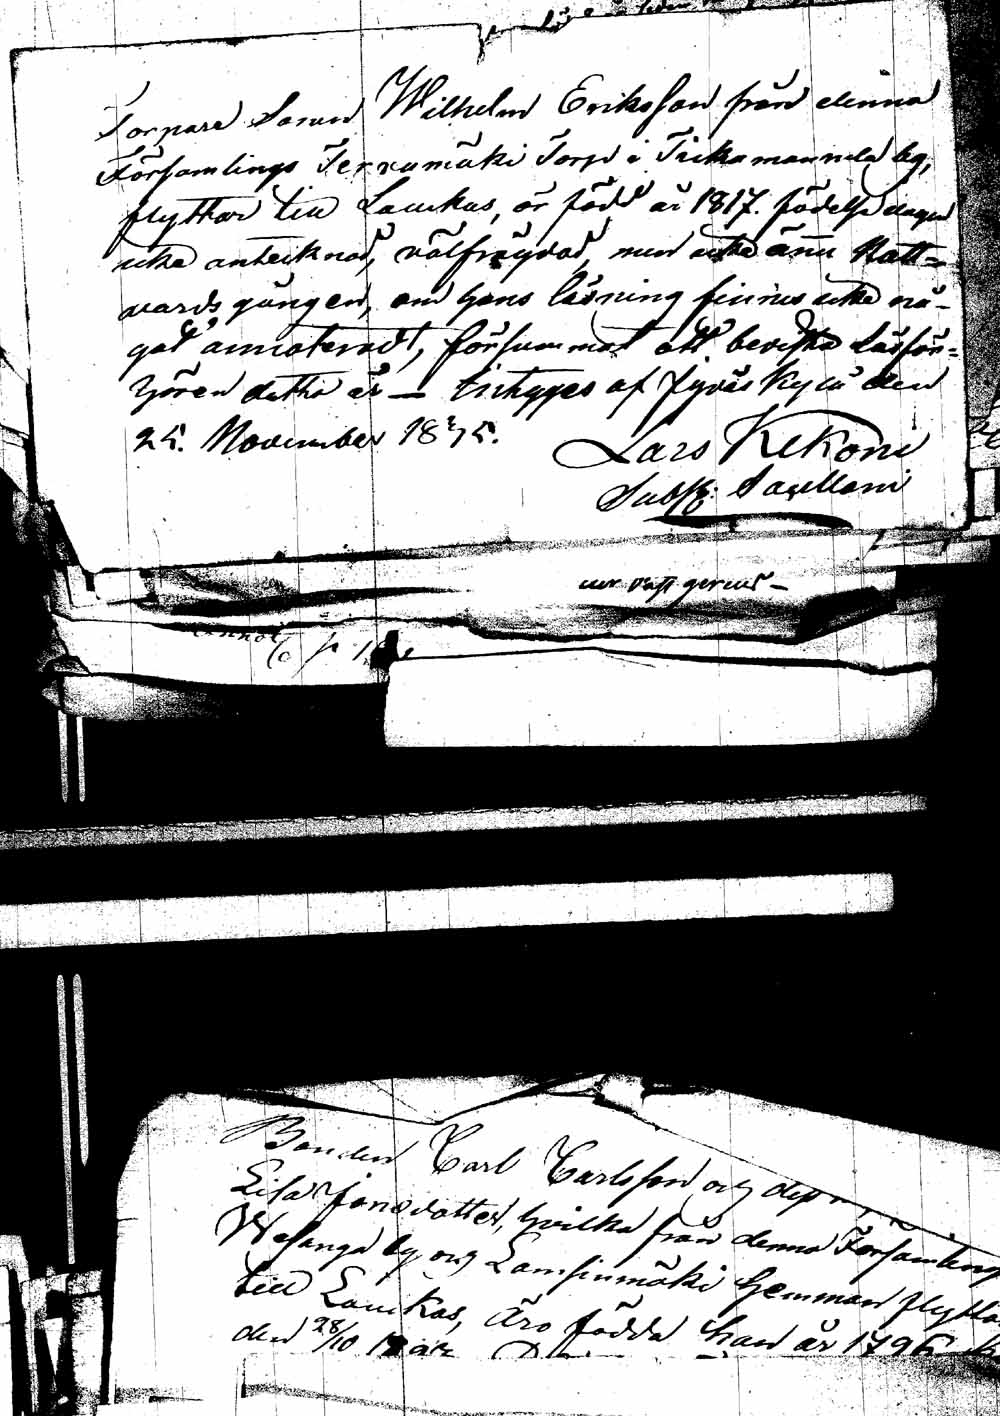 Torpare Sonen Wilhelm Eriksson från denna
Församlings Tervamäki Torp i Tickamannila by,
flyttar till Laukas, är född år 1817. födelse dagen
icke antecknad, välfräydad, men icke ännu Natt=
vards gången, om hans läsning finnes icke nå-
got annoteradt, försummat att bevista Läsför=
hören detta år — betygas af Jyväskylä den
25. November 1835.
Lars Kekoni
Subst: Sacellani
Bonden Carl Carlsson och dess
Lisa Jonsdotter, hvilka från denna Församling
Wesanga by och Lamsinmäki Hemman flytta
till Laukas, äro födda han år 1796
den 28/10